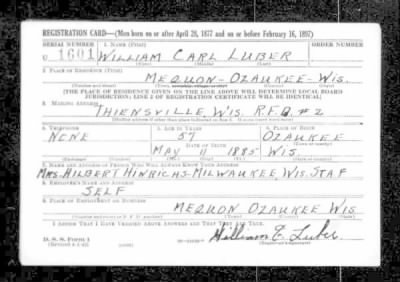 REGISTRATION CARD—(Men born on or after April 28, 1877 and on or before February 16, 1897)
SERIAL NUMBER 1. NAME (Print) ORDER NUMBER
U 1601 WILLIAM CARL LUBER
(First) (Middle) (Last)
2. PLACE OF RESIDENCE (Print)
MEQUON - OZAUKEE - WIS.
(Number and street) (Town, township, village, or city) (County) (State)
[THE PLACE OF RESIDENCE GIVEN ON THE LINE ABOVE WILL DETERMINE LOCAL BOARD
JURISDICTION; LINE 2 OF REGISTRATION CERTIFICATE WILL BE IDENTICAL]
3. MAILING ADDRESS
THIENSVILLE, WIS. R.F.D. #2
[Mailing address if other than place indicated on line 2. If same insert word same]
4. TELEPHONE 5. AGE IN YEARS 6. PLACE OF BIRTH
NONE 57 OZAUKEE
DATE OF BIRTH (Town or county)
MAY 11 1885 WIS.
(Exchange) (Number) (Mo.) (Day) (Yr.) (State or country)
7. NAME AND ADDRESS OF PERSON WHO WILL ALWAYS KNOW YOUR ADDRESS
MRS. HILBERT HINRICHS - MILWAUKEE, WIS. STAF
8. EMPLOYER'S NAME AND ADDRESS
SELF
9. PLACE OF EMPLOYMENT OR BUSINESS
MEQUON OZAUKEE WIS
(Number and street or R. F. D. number) (Town) (County) (State)
I AFFIRM THAT I HAVE VERIFIED ABOVE ANSWERS AND THAT THEY ARE TRUE.
D. S. S. Form 1
(Revised 4-1-42) (over) William C. Luber
(Registrant's signature)